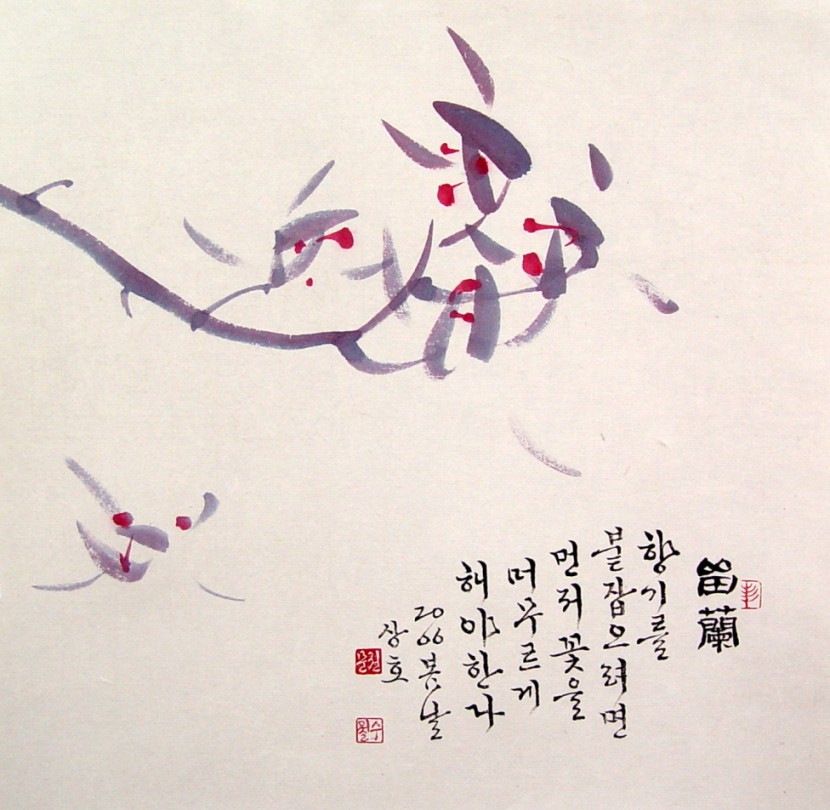 留蘭
향기를
붙잡으려면
먼저 꽃을
머무르게
해야한다
2006 봄날
상호